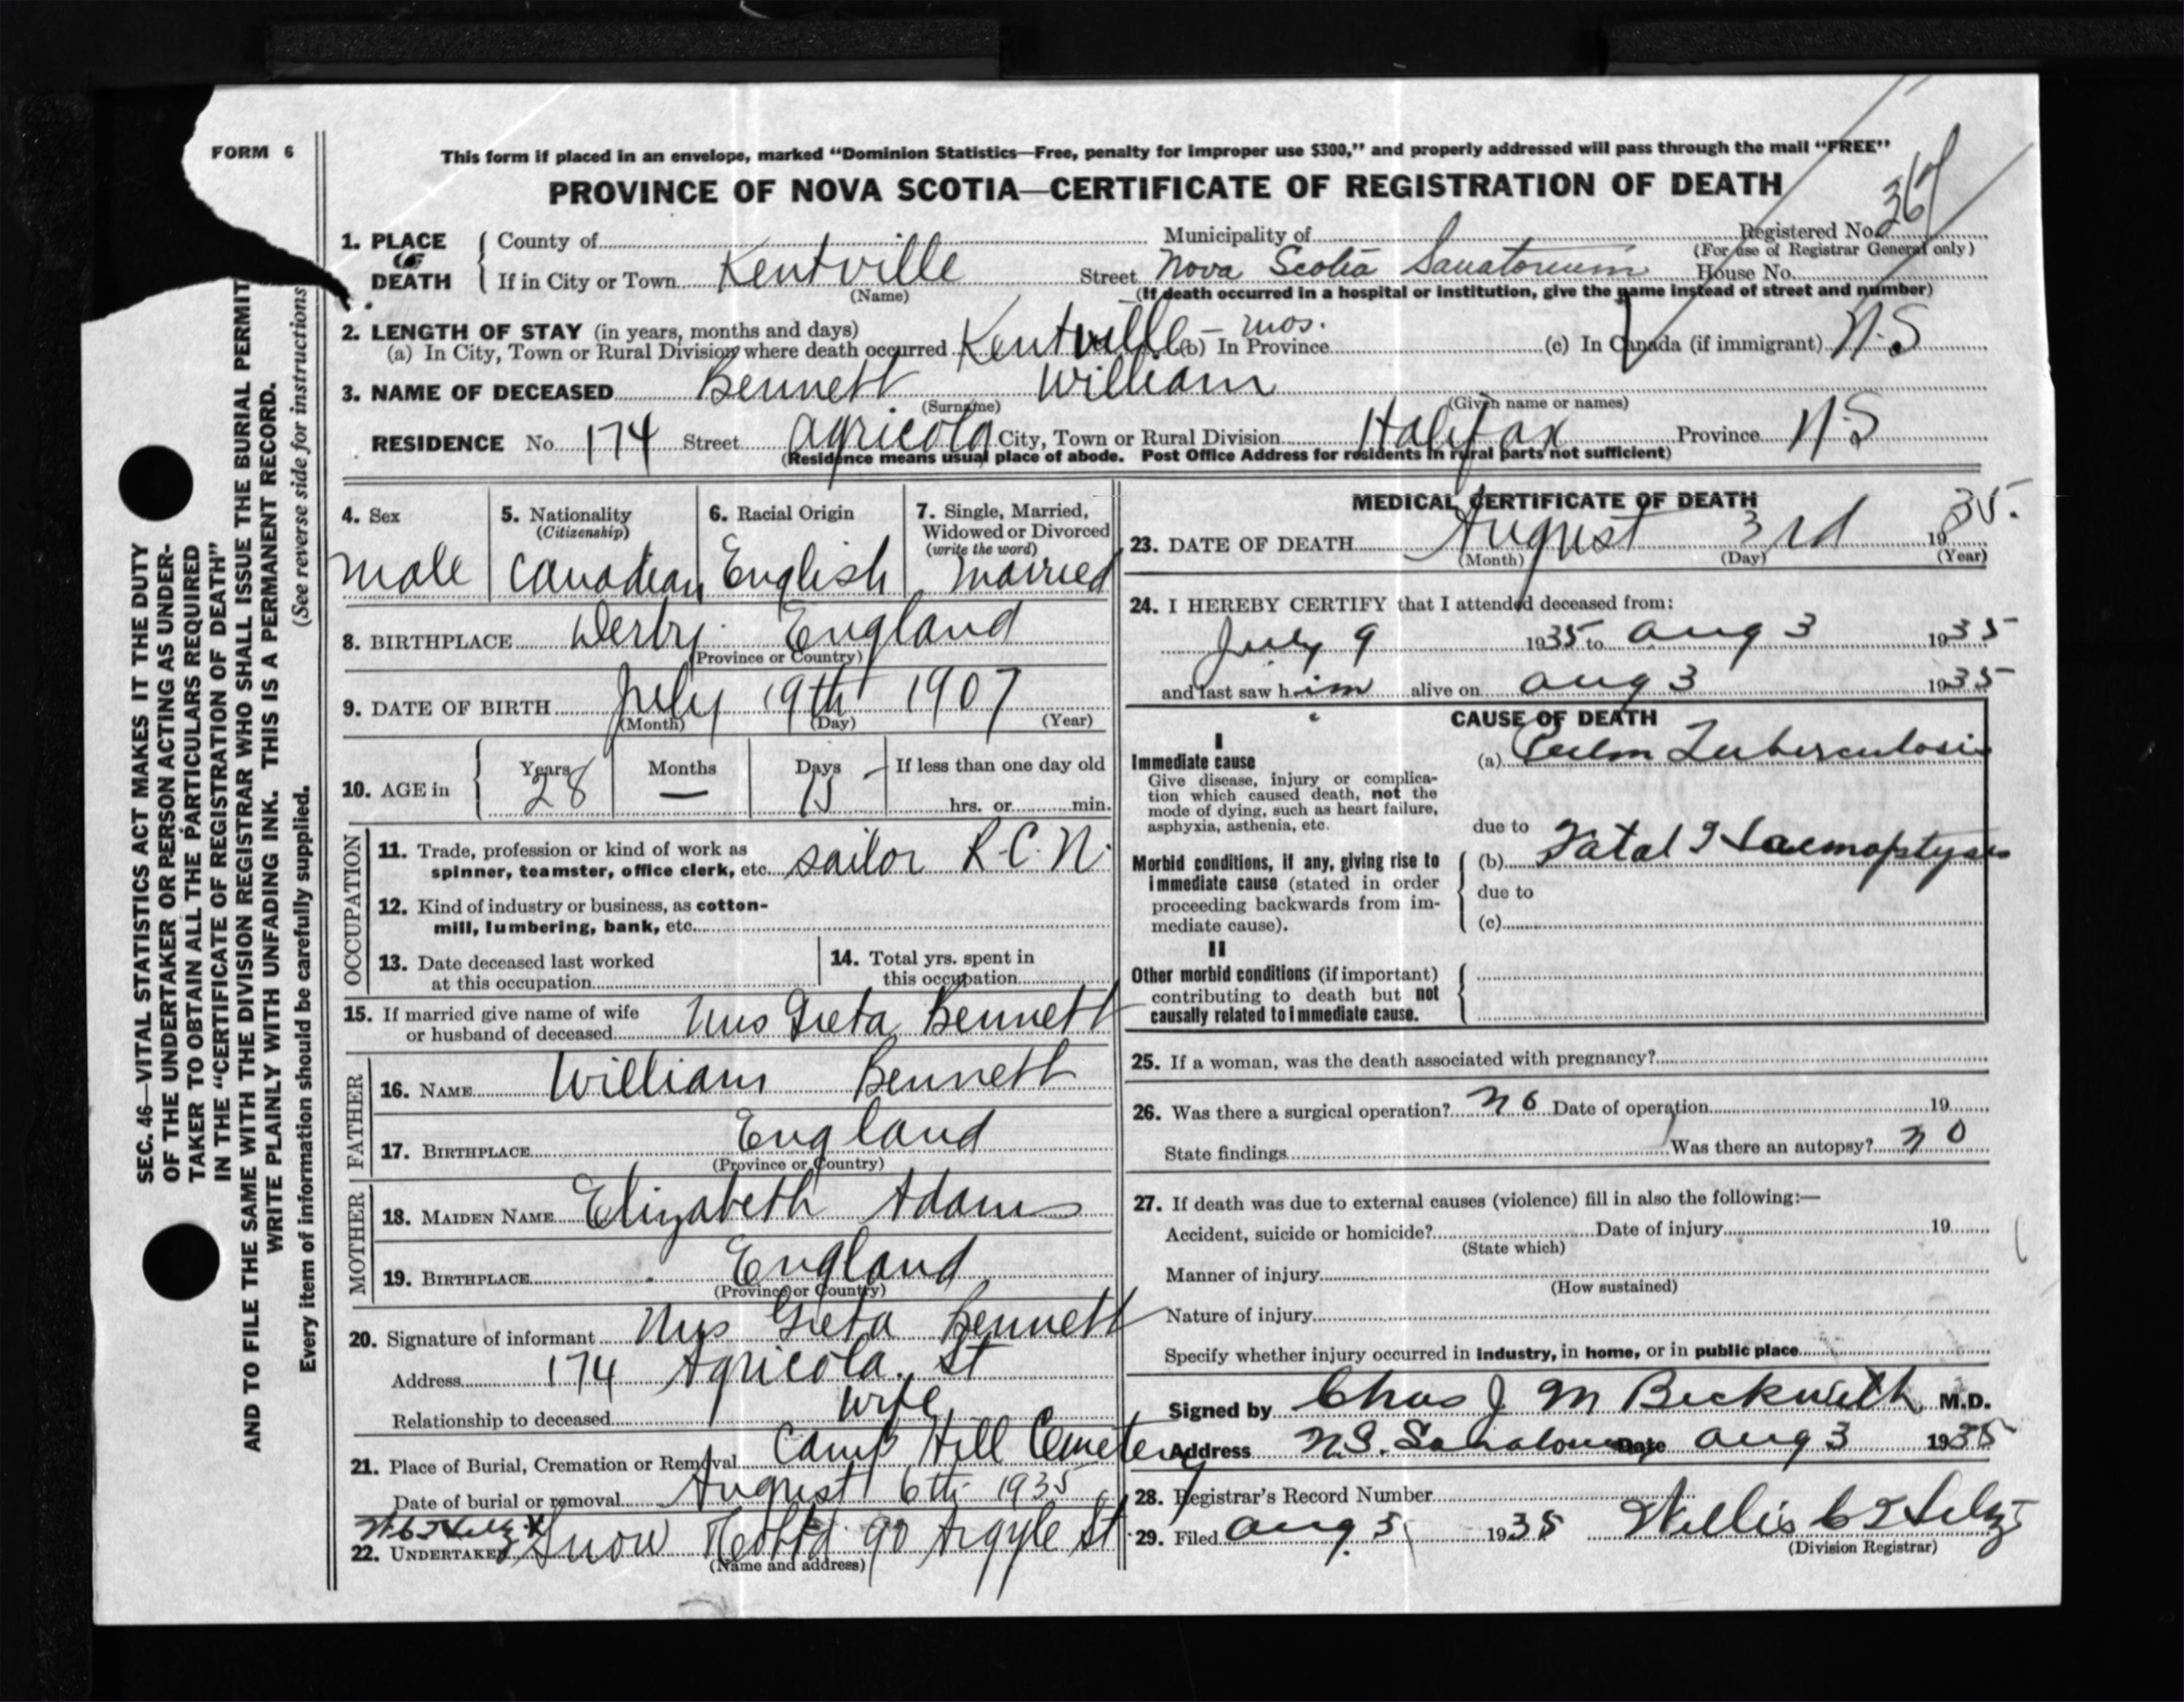 FORM 6
This form if placed in an envelope, marked "Dominion Statistics—Free, penalty for improper use $300," and properly addressed will pass through the mail "FREE"
PROVINCE OF NOVA SCOTIA—CERTIFICATE OF REGISTRATION OF DEATH
1. PLACE OF DEATH County of Municipality of Registered No.
(For use of Registrar General only)
If in City or Town Kentville Street Nova Scotia Sanatorium House No.
(Name) (If death occurred in a hospital or institution, give the name instead of street and number)
2. LENGTH OF STAY (in years, months and days)
(a) In City, Town or Rural Division where death occurred Kentville – mos. (b) In Province (c) In Canada (if immigrant) N.S
3. NAME OF DECEASED Bennett William
(Surname) (Given name or names)
RESIDENCE No. 174 Street Agricola City, Town or Rural Division Halifax Province N.S
(Residence means usual place of abode. Post Office Address for residents in rural parts not sufficient)
4. Sex male
5. Nationality (Citizenship) Canadian
6. Racial Origin English
7. Single, Married, Widowed or Divorced (write the word) Married
8. BIRTHPLACE Derby England
(Province or Country)
9. DATE OF BIRTH July 19th 1907
(Month) (Day) (Year)
10. AGE in Years 28 Months — Days 15 If less than one day old
hrs. or min.
OCCUPATION
11. Trade, profession or kind of work as
spinner, teamster, office clerk, etc. sailor R.C.N.
12. Kind of industry or business, as cotton-
mill, lumbering, bank, etc.
13. Date deceased last worked
at this occupation
14. Total yrs. spent in
this occupation
15. If married give name of wife
or husband of deceased Mrs Greta Bennett
FATHER
16. NAME William Bennett
17. BIRTHPLACE England
(Province or Country)
MOTHER
18. MAIDEN NAME Elizabeth Adams
19. BIRTHPLACE England
(Province or Country)
20. Signature of informant Mrs Greta Bennett
Address 174 Agricola St
Relationship to deceased wife
21. Place of Burial, Cremation or Removal Camp Hill Cemetery
Date of burial or removal August 6th 1935
22. UNDERTAKER Snow Co Ltd 90 Argyle St
(Name and address)
MEDICAL CERTIFICATE OF DEATH
23. DATE OF DEATH August 3rd 1935.
(Month) (Day) (Year)
24. I HEREBY CERTIFY that I attended deceased from:
July 9 1935 to Aug 3 1935
and last saw him alive on Aug 3 1935
CAUSE OF DEATH
I
Immediate cause
Give disease, injury or complica-
tion which caused death, not the
mode of dying, such as heart failure,
asphyxia, asthenia, etc.
(a) Pulm Tuberculosis
due to
Morbid conditions, if any, giving rise to
immediate cause (stated in order
proceeding backwards from im-
mediate cause).
(b) Fatal Haemoptysis
due to
(c)
II
Other morbid conditions (if important)
contributing to death but not
causally related to immediate cause.
25. If a woman, was the death associated with pregnancy?
26. Was there a surgical operation? no Date of operation 19
State findings Was there an autopsy? no
27. If death was due to external causes (violence) fill in also the following:—
Accident, suicide or homicide? Date of injury 19
(State which)
Manner of injury
(How sustained)
Nature of injury
Specify whether injury occurred in industry, in home, or in public place
Signed by Chas J M Beckwith, M.D.
Address N.S. Sanatorium Date Aug 3 1935
28. Registrar's Record Number
29. Filed Aug 5 1935 Willis
(Division Registrar)
SEC. 46—VITAL STATISTICS ACT MAKES IT THE DUTY
OF THE UNDERTAKER OR PERSON ACTING AS UNDER-
TAKER TO OBTAIN ALL THE PARTICULARS REQUIRED
IN THE "CERTIFICATE OF REGISTRATION OF DEATH"
AND TO FILE THE SAME WITH THE DIVISION REGISTRAR WHO SHALL ISSUE THE BURIAL PERMIT
WRITE PLAINLY WITH UNFADING INK. THIS IS A PERMANENT RECORD.
Every item of information should be carefully supplied. (See reverse side for instructions